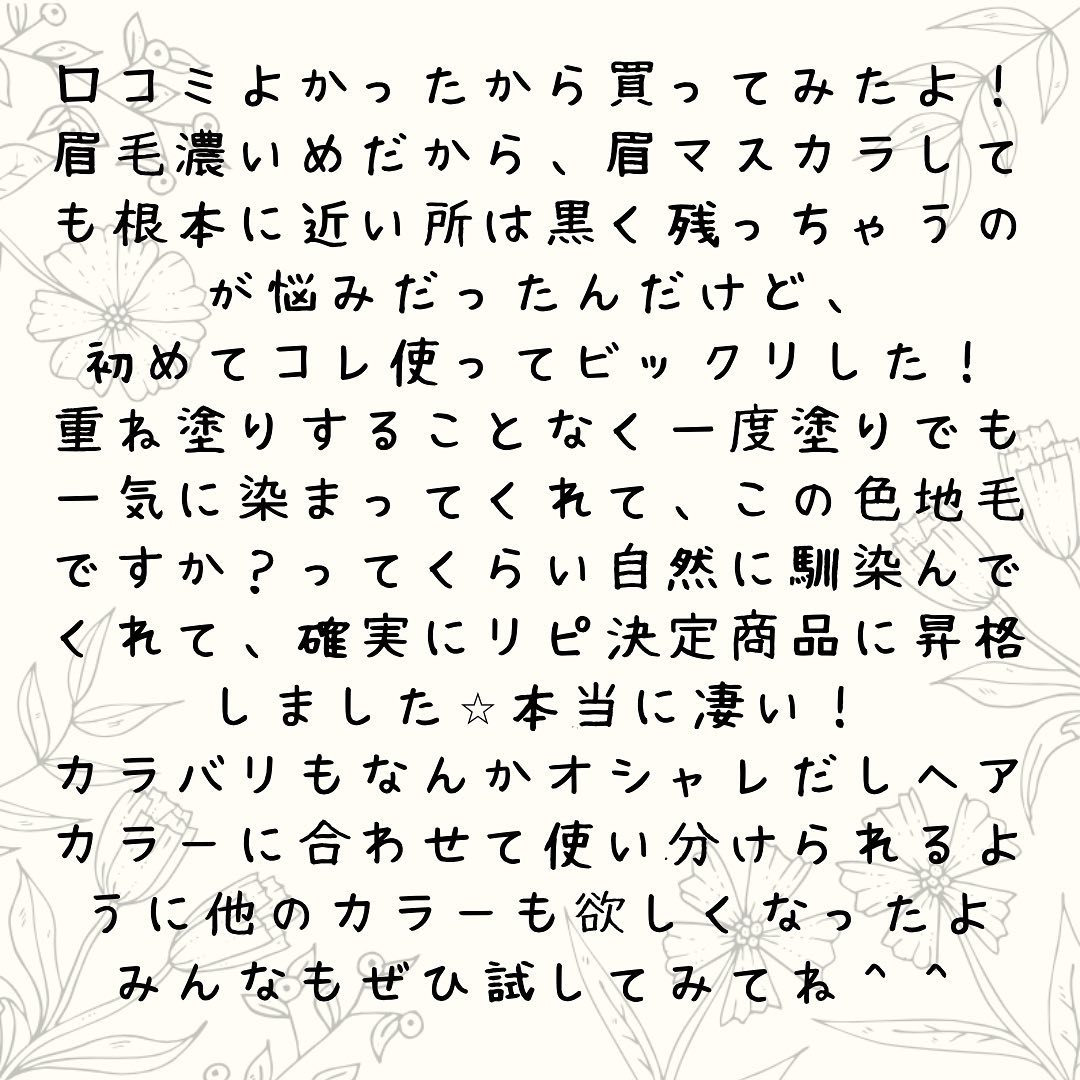 口コミよかったから買ってみたよ！
眉毛濃いめだから、眉マスカラして
も根本に近い所は黒く残っちゃうの
が悩みだったんだけど、
初めてコレ使ってビックリした！
重ね塗りすることなく一度塗りでも
一気に染まってくれて、この色地毛
ですか？ってくらい自然に馴染んで
くれて、確実にリピ決定商品に昇格
しました☆本当に凄い！
カラバリもなんかオシャレだしヘア
カラーに合わせて使い分けられるよ
うに他のカラーも欲しくなったよ
みんなもぜひ試してみてね＾＾